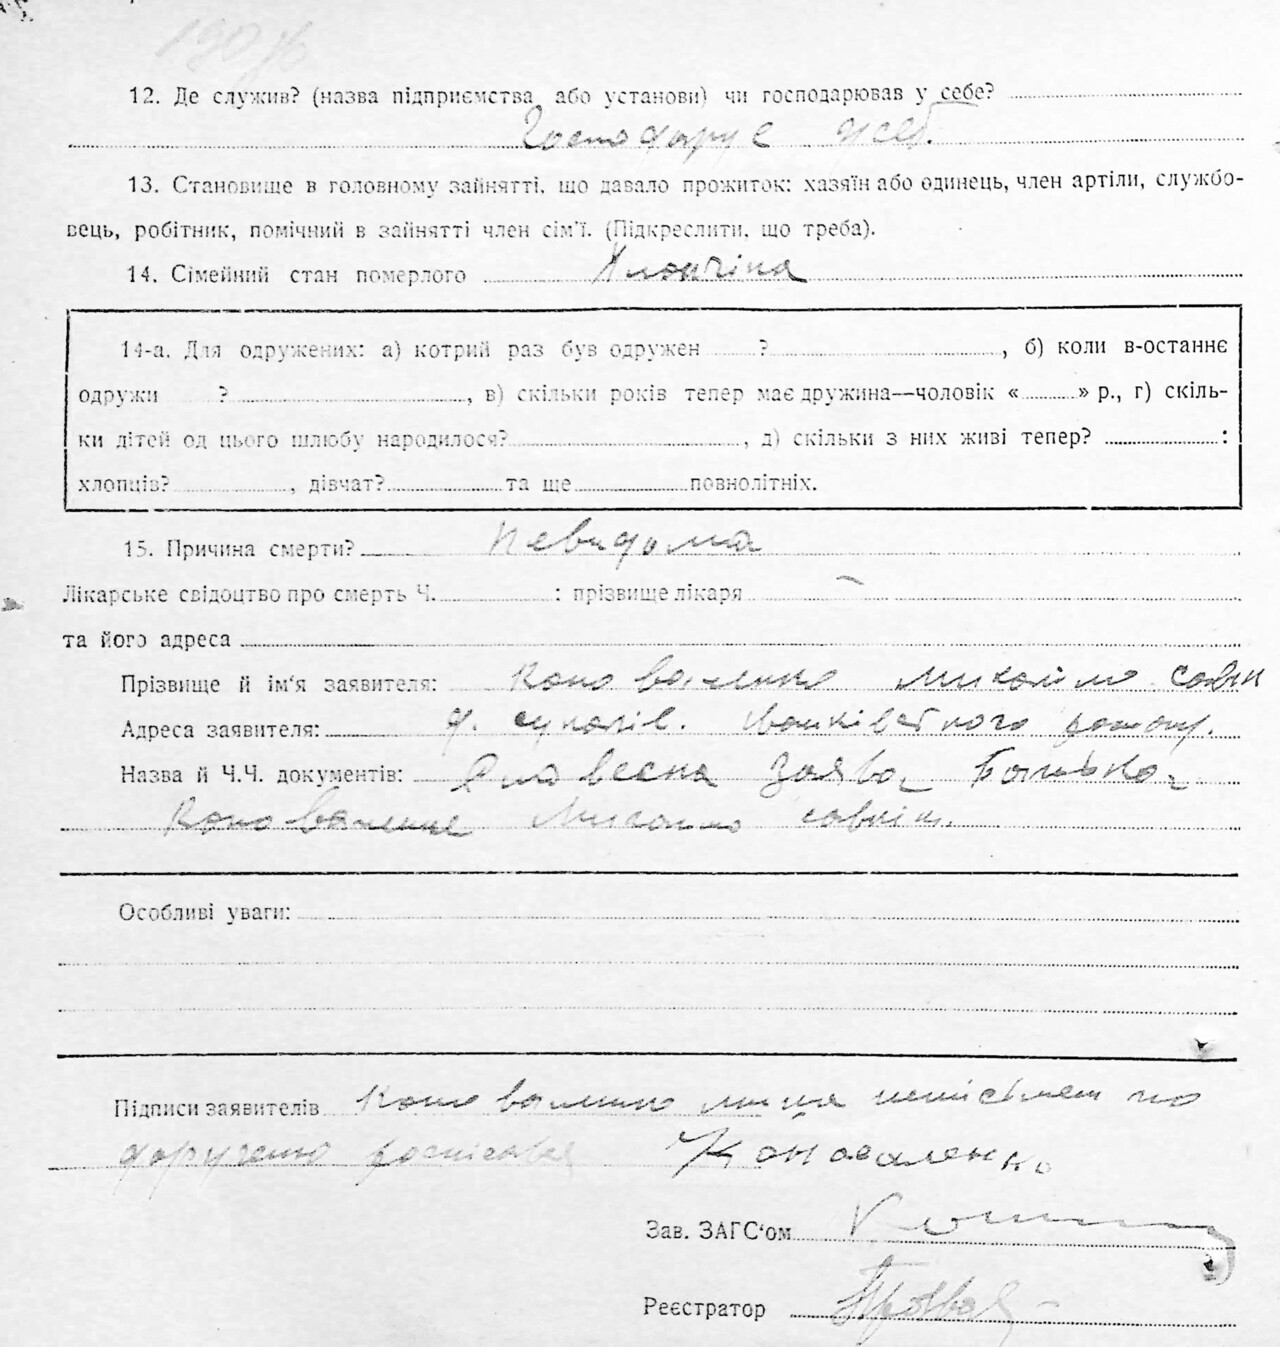 12. Де служив? (назва підприємства або установи) чи господарював у себе?
Господарує у себ.
13. Становище в головному зайнятті, що давало прожиток: хазяїн або одинець, член артілі, службо-
вець, робітник, помічний в зайнятті член сім'ї. (Підкреслити, що треба).
14. Сімейний стан померлого
14-а. Для одружених: а) котрий раз був одружен ?, б) коли в-останнє
одружи ?, в) скільки років тепер має дружина—чоловік « » р., г) скіль-
ки дітей од цього шлюбу народилося?, д) скільки з них живі тепер? :
хлопців?, дівчат? та ще повнолітніх.
15. Причина смерти? Невидома
Лікарське свідоцтво про смерть Ч. : прізвище лікаря —
та його адреса
Прізвище й ім'я заявителя: Коноваленко Микола
Адреса заявителя:
Назва й Ч.Ч. документів: Словесна Заява Батька
Коноваленко
Особливі уваги:
Підписи заявителів Коноваленко по
Коноваленко
Зав. ЗАГС'ом
Реєстратор